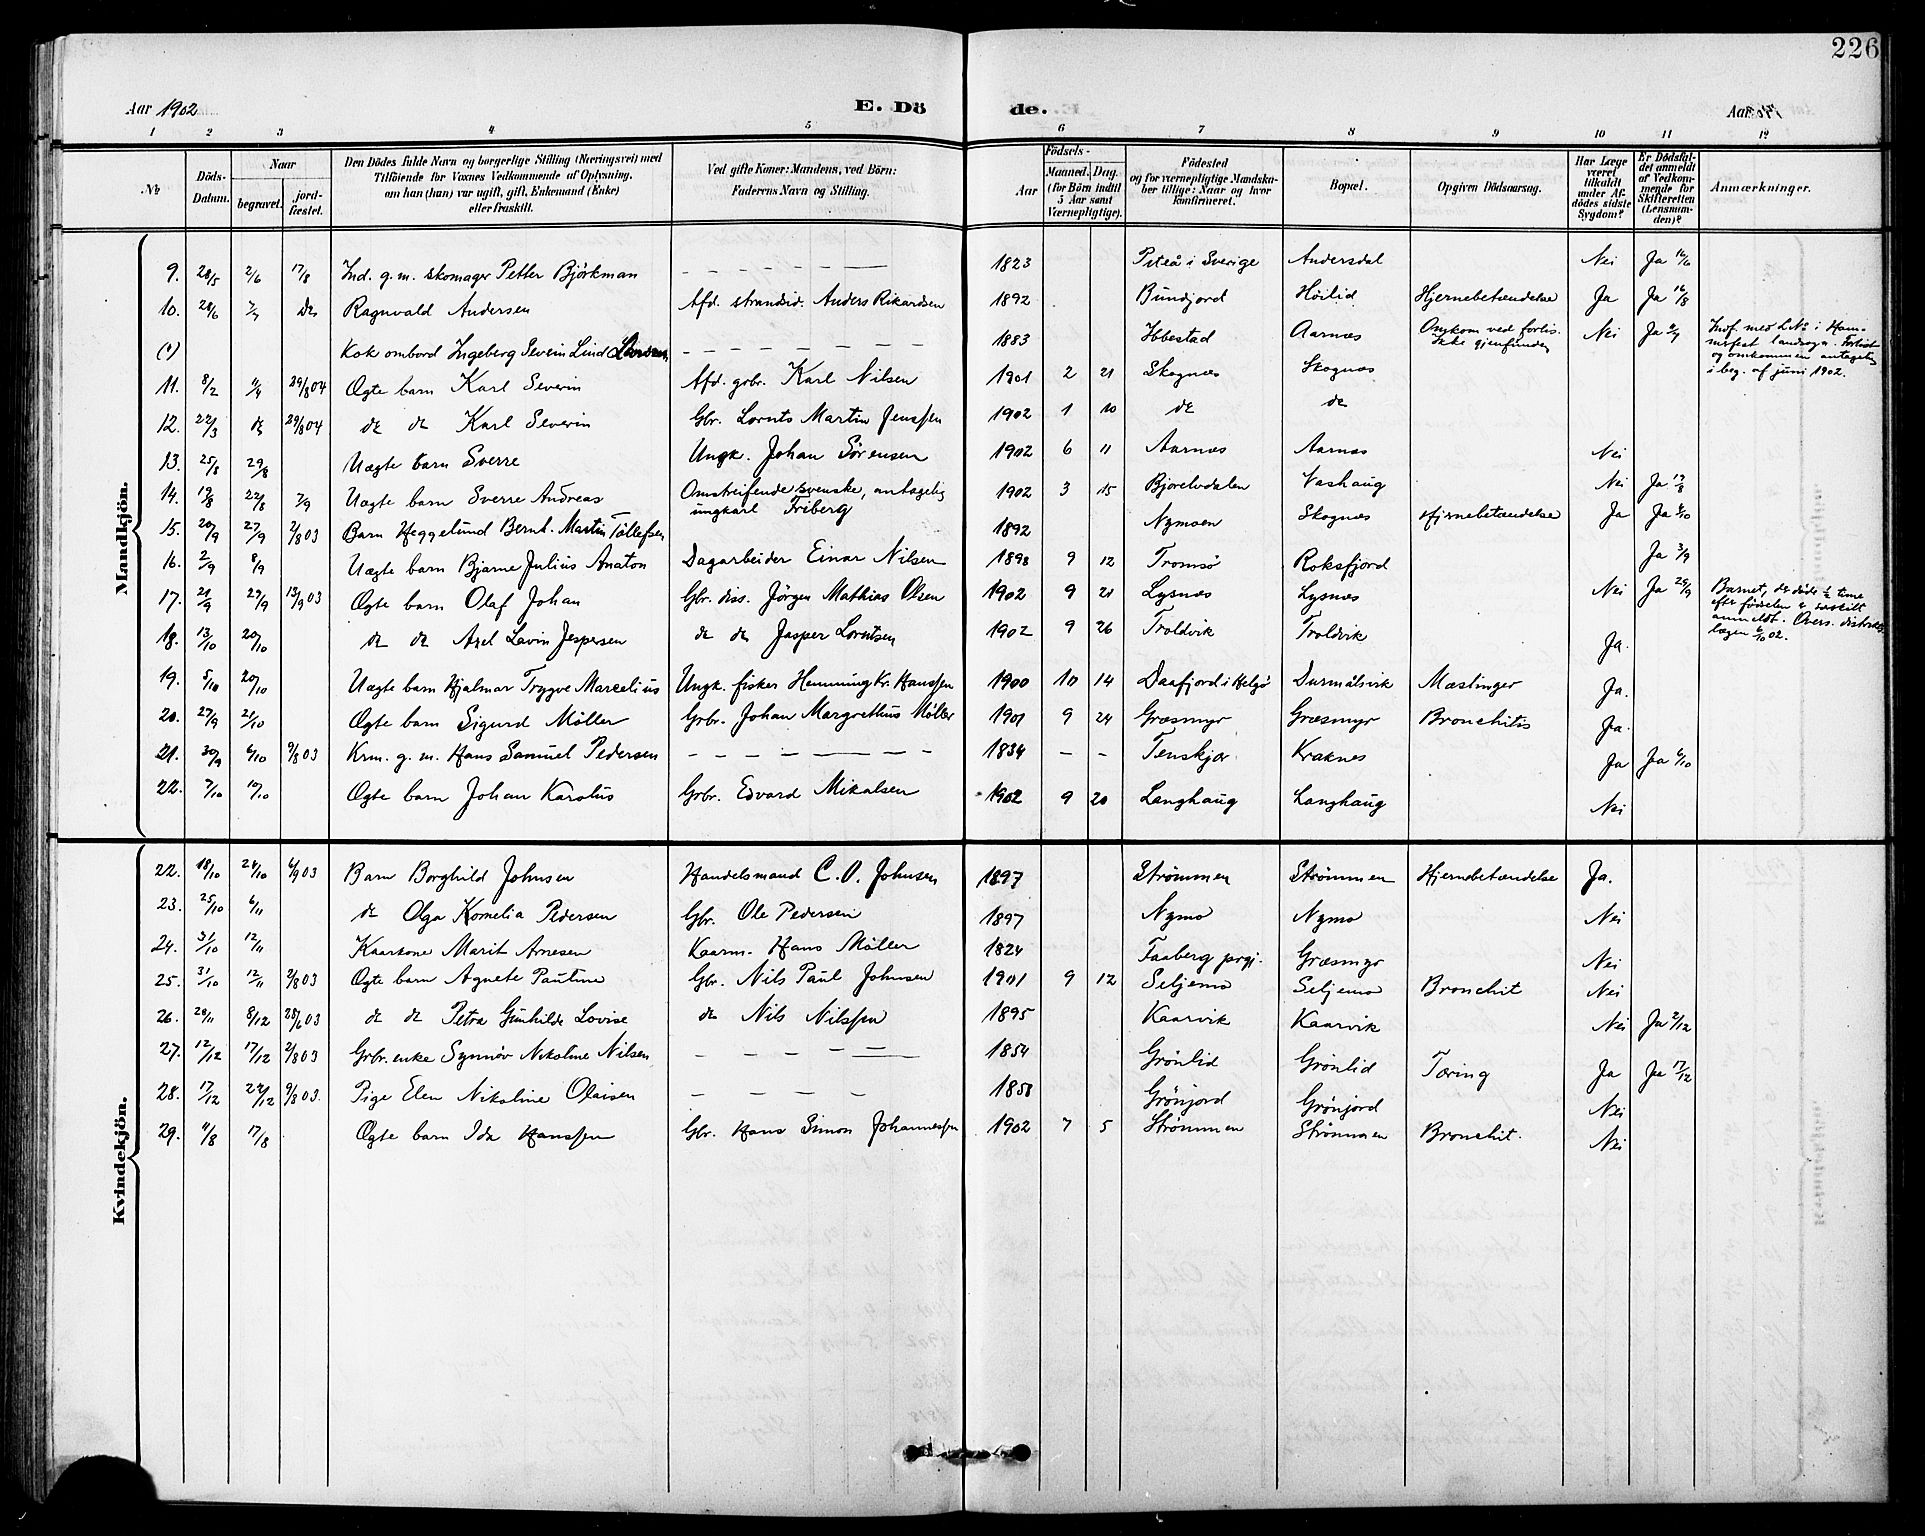 226
Aar 1902
E. Dö
de.
Aar
1 2 3 4 5 6 7 8 9 10 11 12
No
Döds-Datum.
Naar
begravet.
jord-fæstet.
Den Dödes fulde Navn og borgerlige Stilling (Næringsvei) med
Tilföiende for Voxnes Vedkommende af Oplysning,
om han (hun) var ugift, gift, Enkemand (Enke)
eller fraskilt.
Ved gifte Koner: Mandens, ved Börn:
Faderens Navn og Stilling.
Födsels-
Aar
Maaned. Dag.
(for Börn indtil
5 Aar samt
Værnepligtige).
Födested
og for værnepligtige Mandska-
ber tillige: Naar og hvor
konfirmeret.
Bopæl.
Opgiven Dödsaarsag.
Har Læge
været
tilkaldt
under Af-
dödes sidste
Sygdom?
Er Dödsfal-
det anmeldt
af Vedkom-
mende for
Skifteretten
(Lensman-
den)?
Anmærkninger.
Mandkjön.
9. 28/5 2/6 17/8 Ind. g. m. skomager Petter Björkman — — — 1823 Piteå i Sverige Andersdal Nei Ja 16/6
10. 28/6 7/7 do Ragnvald Andersen Afd. strandsid. Anders Rikardsen 1892 Bundjord Höilid Hjernebetændelse Ja Ja 16/8
(1) Kok ombord Ingeberg Severin Lind — — — 1883 Ibbestad Aarnes Omkom ved forlis. Ikke gjenfunden Nei Ja Indf. med L No i Ham-
merfest landsogn. Forlist
og omkommen antagelig
i beg. af juni 1902.
11. 8/2 29/8 04 Ægte barn Karl Severin Afd. grbr. Karl Nilsen 1901 2 21 Skognæs Skognæs
12. 22/3 do 29/8 04 do do Karl Severin Gbr. Lornts Martin Jenssen 1902 1 10 do do
13. 25/8 29/8 Uægte barn Sverre Ungk. Johan Sörensen 1902 6 11 Aarnæs Aarnæs Nei
14. 19/8 22/8 7/9 Uægte barn Sverre Andreas Omstreifende svenske, antagelig
ungkarl Friberg 1902 3 15 Bjorelvdalen Vashaug Nei Ja 19/8
15. 20/9 27/9 2/8 03 Barn Heggelund Bernt. Martin Tollefsen 1892 Nymoen Skognæs Hjernebetændelse Ja Ja
16. 2/9 8/9 Uægte barn Bjarne Julius Anaton Dagarbeider Einar Nilsen 1898 9 12 Tromsö Roksfjord Ja 3/9
17. 21/9 27/9 13/9 03 Ægte barn Olaf Johan Gbr. diss. Jörgen Mathias Olsen 1902 9 21 Lysnæs Lysnæs Nei Ja 29/9 Barnet, der döde ½ time
efter födselen er særskilt
anmeldt. Overs. distrikts
lægen 6/10 02.
18. 13/10 20/10 do do Axel Lavin Jespersen do do Jasper Lorntsen 1902 9 26 Troldvik Troldvik Ja.
19. 5/10 20/10 Uægte barn Hjalmar Trygve Marcelius Ungk. fisker Hemming Kr. Hanssen 1900 10 14 Daafjord i Helgö Durmålsvik Mæslinger Ja.
20. 27/9 2/10 Ægte barn Sigurd Möller Grbr. Johan Margrethus Möller 1901 9 24 Græsmyr Græsmyr Bronchitis Ja.
21. 30/9 6/10 9/8 03 Krm. g. m. Hans Samuel Pedersen — — — 1834 — — Tenskjær Kraknes Ja Ja 6/10
22. 7/10 10/10 Ægte barn Johan Karolus Grbr. Edvard Mikalsen 1902 9 20 Langhaug Langhaug Nei
Kvindekjön.
22. 18/10 24/10 6/9 03 Barn Borghild Johnsen Handelsmand C. O. Johnsen 1897 Strömmen Strömmen Hjernebetændelse Ja.
23. 25/10 6/11 do Olga Kornelia Pedersen Gbr. Ole Pedersen 1897 Nymo Nymo Nei
24. 31/10 12/11 Kaarkone Marit Arnesen Kaarm. Hans Möller 1824 Faaberg prgj. Græsmyr Nei
25. 31/10 12/11 2/8 03 Ægte barn Agnete Pauline Gbr. Nils Paul Johnsen 1901 9 12 Seljemo Seljemo Bronchit Nei
26. 28/11 8/12 28/6 03 do do Petra Gunhilde Lovise do Nils Nilssen 1895 Kaarvik Kaarvik Nei Ja 2/12
27. 12/12 17/12 2/8 03 Grbr. enke Synnöv Nikoline Nilsen — — — 1854 Grönlid Grönlid Tæring Ja Ja 17/12
28. 17/12 24/12 9/8 03. Pige Elen Nikoline Olaisen — — — 1858 Grönjord Grönjord Nei
29. 11/8 17/8 Ægte barn Ida Hanssen Gbr. Hans Simon Johannessen 1902 7 5 Strömmen Strömmen Bronchit. Nei